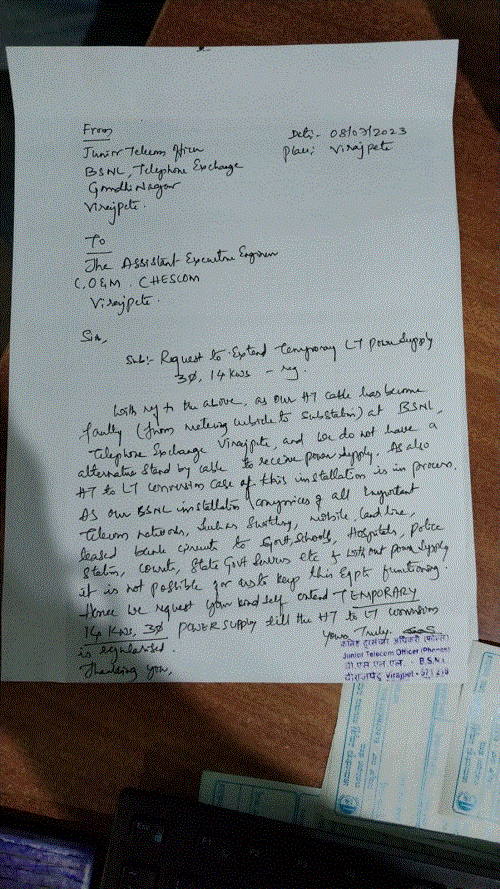 From
Date:- 08/07/2023
Junior Telecom Officer
Place: Virajpete
BSNL, Telephone Exchange
Gandhi Nagar
Virajpete.
To
The Assistant Executive Engineer
C,O&M. CHESCOM
Virajpete.
Sir,
Sub:- Request to Extend Temporary LT power supply
3Ø, 14 KWs - reg.
With ref to the above, as our HT cable has become
faulty (from metering cubicle to Substation) at BSNL,
Telephone Exchange Virajpete, and we do not have a
alternative stand by cable to receive power supply. As also
HT to LT conversion case of this installation is in process.
As our BSNL installation comprises of all Important
Telecom networks, such as Switching, mobile, land line,
leased circuits to Govt Schools, Hospitals, Police
Station, Courts, State Govt Servers etc & without power supply
it is not possible for us to keep this Eqpt functioning.
Hence we request your kind self extend TEMPORARY
14 KWs, 3Ø POWER SUPPLY till the HT to LT conversion
is regularised.
Yours Truly
Thanking you,
कनिष्ठ दूरसंचार अधिकारी
Junior Telecom Officer (Phones)
बी एस एन एल - B.S.N.L
वीराजपेट Virajpet - 571 218